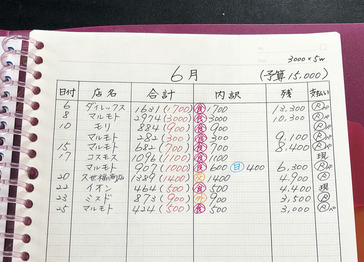 3000×5w
6月 (予算15,000)
日付 店名 合計 内訳 残 支払い
6 ダイレックス 1631(1700) 食1700 13,300
8 マルモト 2974(3000) 食3000 10,300
10 モリ 884(900) 食900
マルモト 282(300) 食300 9,100
15 マルモト 682(700) 食700 8,400
17 コスモス 1096(1100) 食1100 現
マルモト 907(1000) 食600 日400 6,300
20 1389(1400) 1400 4,900
22 イオン 464(500) 食500 4,400 現
23 ミスド 873(900) 900 3,500
25 マルモト 424(500) 食500 3,000